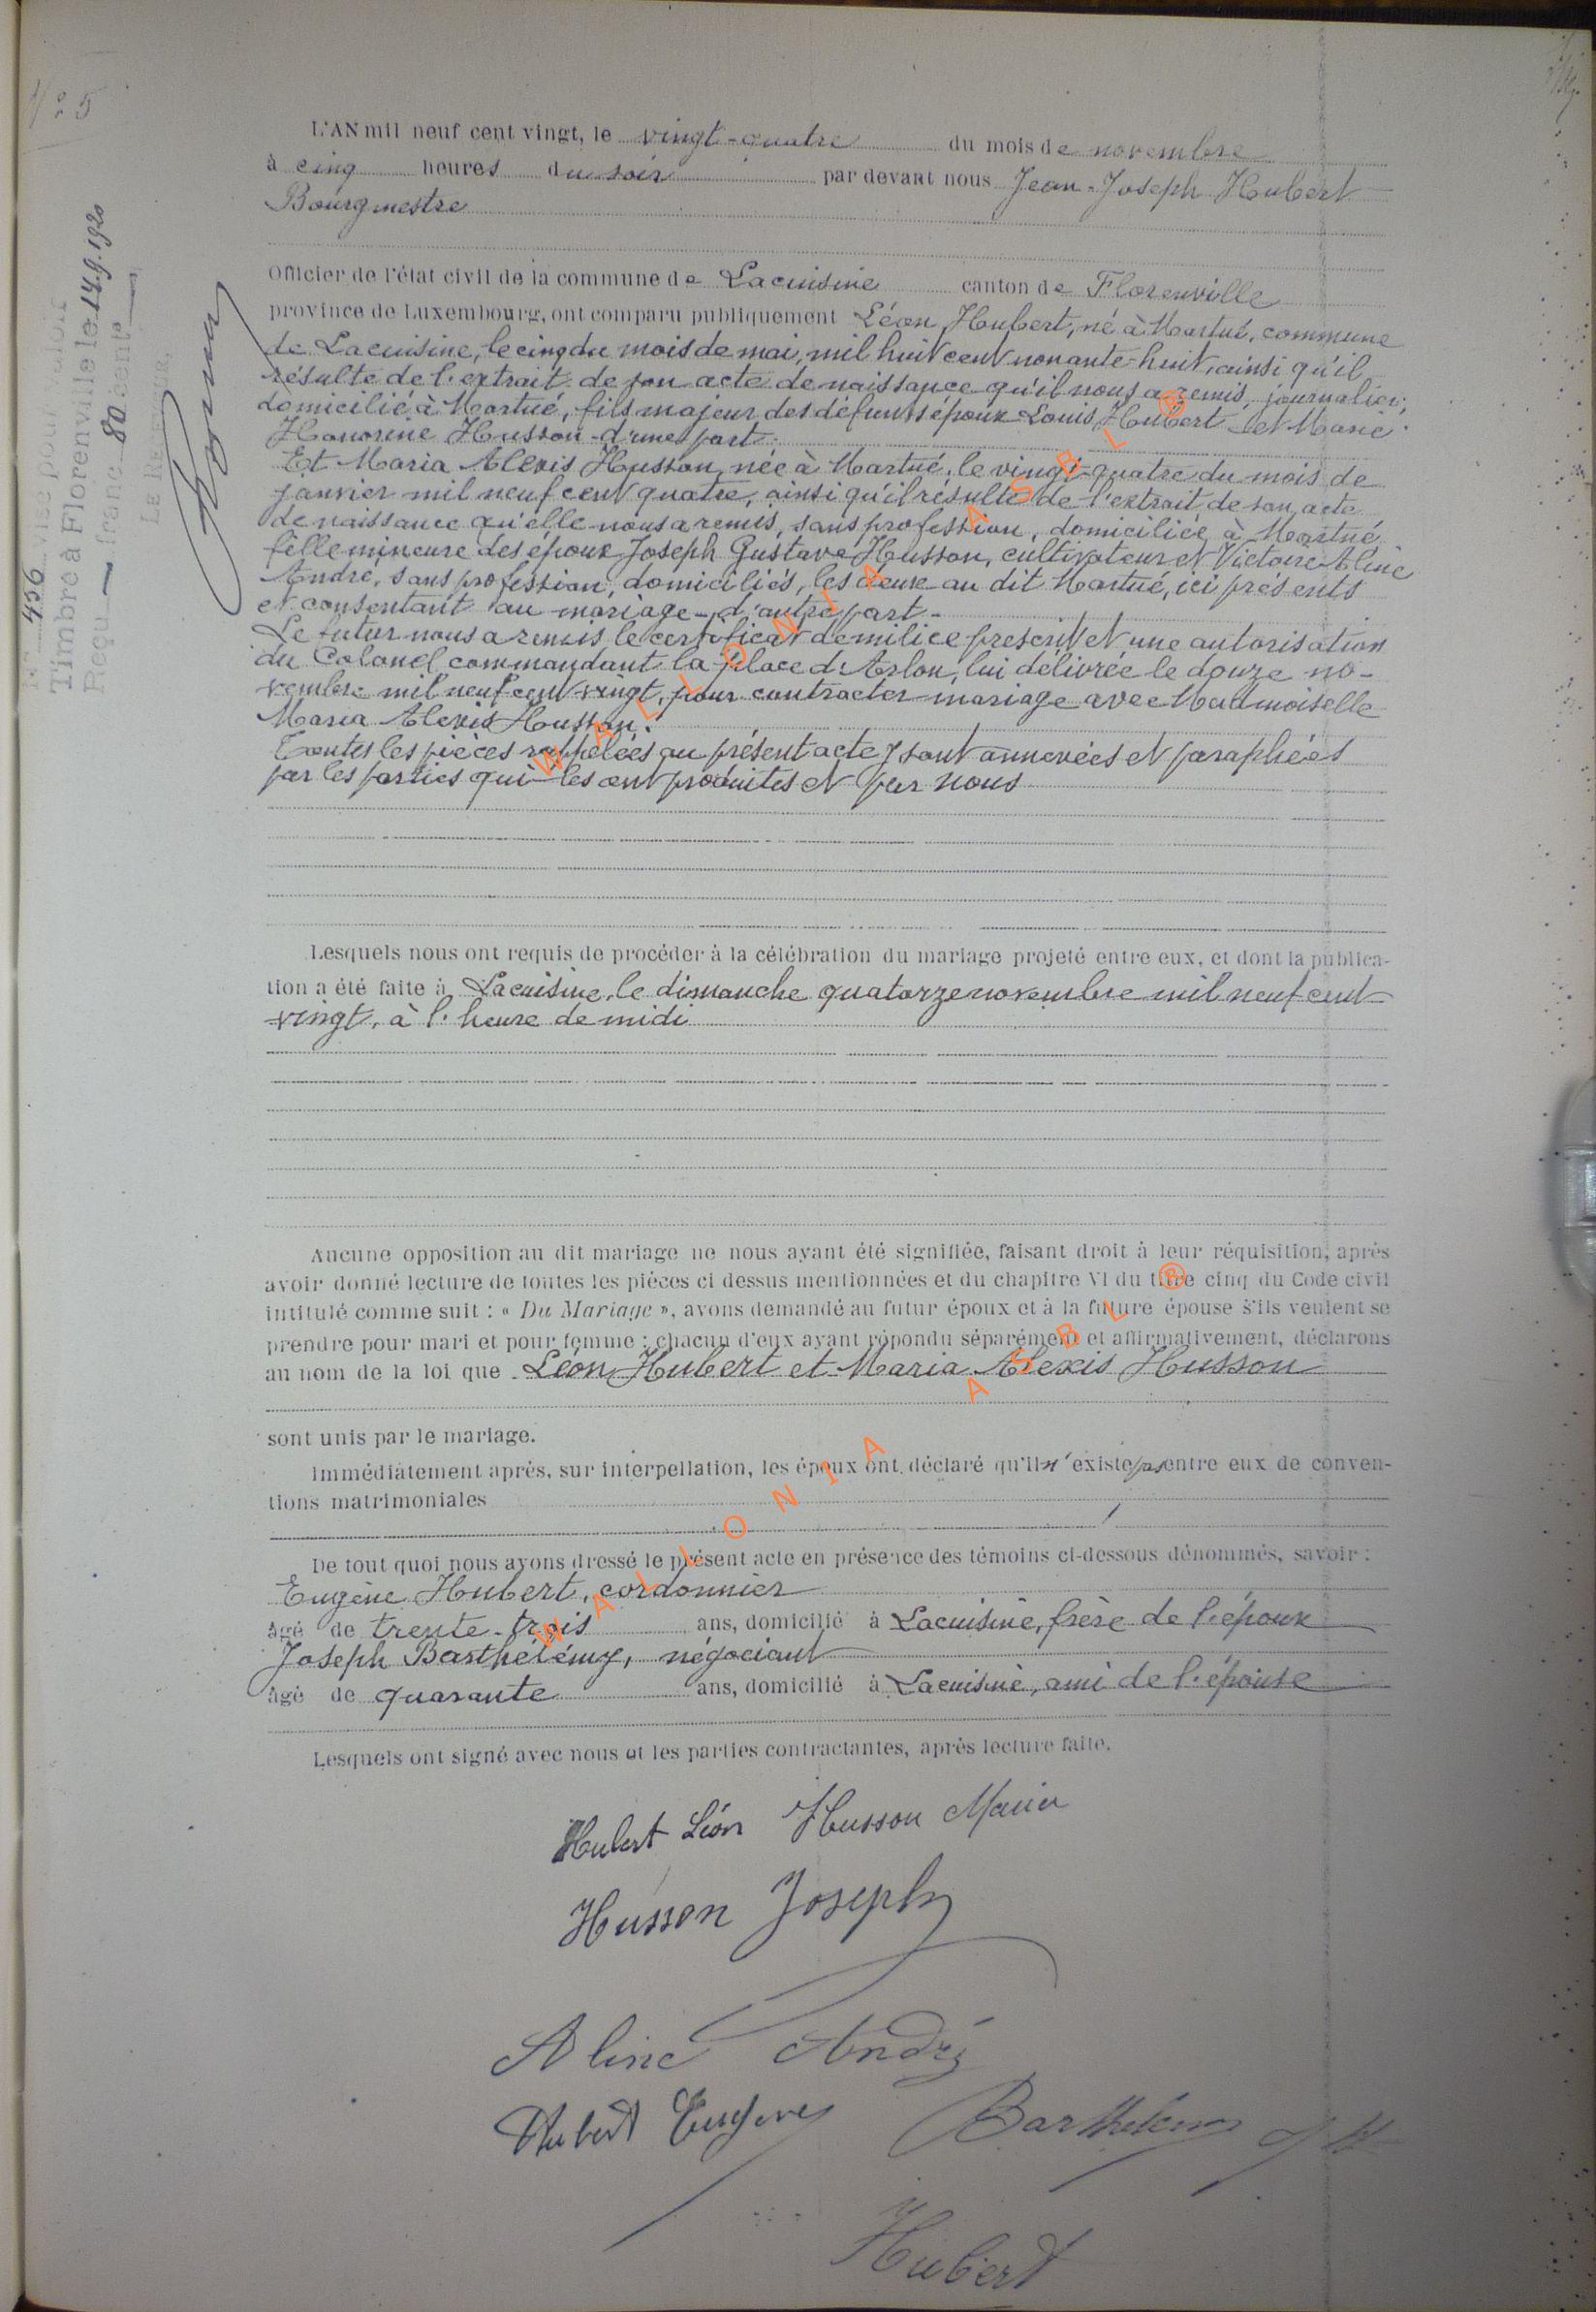 N° 5
L'AN mil neuf cent vingt, le vingt-quatre du mois de novembre
à cinq heures du soir par devant nous Jean-Joseph Hubert
Bourgmestre
Officier de l'état civil de la commune de Lacuisine canton de Florenville
province de Luxembourg, ont comparu publiquement Léon Hubert, né à Martué, commune
de Lacuisine, le cinq du mois de mai, mil huit cent nonante-huit, ainsi qu'il
résulte de l'extrait de son acte de naissance qu'il nous a remis, journalier,
domicilié à Martué, fils majeur des défunts époux Louis Hubert et Marie
Honorine Husson - d'une part.
Et Maria Alexis Husson, née à Martué, le vingt-quatre du mois de
janvier mil neuf cent quatre, ainsi qu'il résulte de l'extrait de son acte
de naissance qu'elle nous a remis, sans profession, domiciliée à Martué
fille mineure des époux Joseph Gustave Husson, cultivateur et Victoire Aline
André, sans profession, domiciliés, les deux au dit Martué, ici présents
et consentant au mariage - d'autre part -
Le futur nous a remis le certificat de milice prescrit et une autorisation
du Colonel commandant la place d'Arlon, lui délivrée le douze no-
vembre mil neuf cent vingt, pour contracter mariage avec Mademoiselle
Maria Alexis Husson.
Toutes les pièces rappelées au présent acte y sont annexées et paraphées
par les parties qui les ont produites et par nous
Lesquels nous ont requis de procéder à la célébration du mariage projeté entre eux, et dont la publica-
tion a été faite à Lacuisine, le dimanche quatorze novembre mil neuf cent
vingt, à l'heure de midi
Aucune opposition au dit mariage ne nous ayant été signifiée, faisant droit à leur réquisition, après
avoir donné lecture de toutes les pièces ci dessus mentionnées et du chapitre VI du titre cinq du Code civil
intitulé comme suit : « Du Mariage », avons demandé au futur époux et à la future épouse s'ils veulent se
prendre pour mari et pour femme ; chacun d'eux ayant répondu séparément et affirmativement, déclarons
au nom de la loi que Léon Hubert et Maria Alexis Husson
sont unis par le mariage.
Immédiatement après, sur interpellation, les époux ont déclaré qu'il n'existe pas entre eux de conven-
tions matrimoniales
De tout quoi nous avons dressé le présent acte en présence des témoins ci-dessous dénommés, savoir :
Eugène Hubert, cordonnier
âgé de trente-trois ans, domicilié à Lacuisine, frère de l'époux
Joseph Barthélémy, négociant
âgé de quarante ans, domicilié à Lacuisine, ami de l'épouse
Lesquels ont signé avec nous et les parties contractantes, après lecture faite.
Hubert Léon Husson Maria
Husson Joseph
Aline André
Hubert Eugène Barthélémy
Hubert
N° 456
Timbré à Florenville le 14.9.1920
Reçu — franc 80 cents
LE RECEVEUR,
WALLONIA ASBL ®
WALLONIA ASBL ®